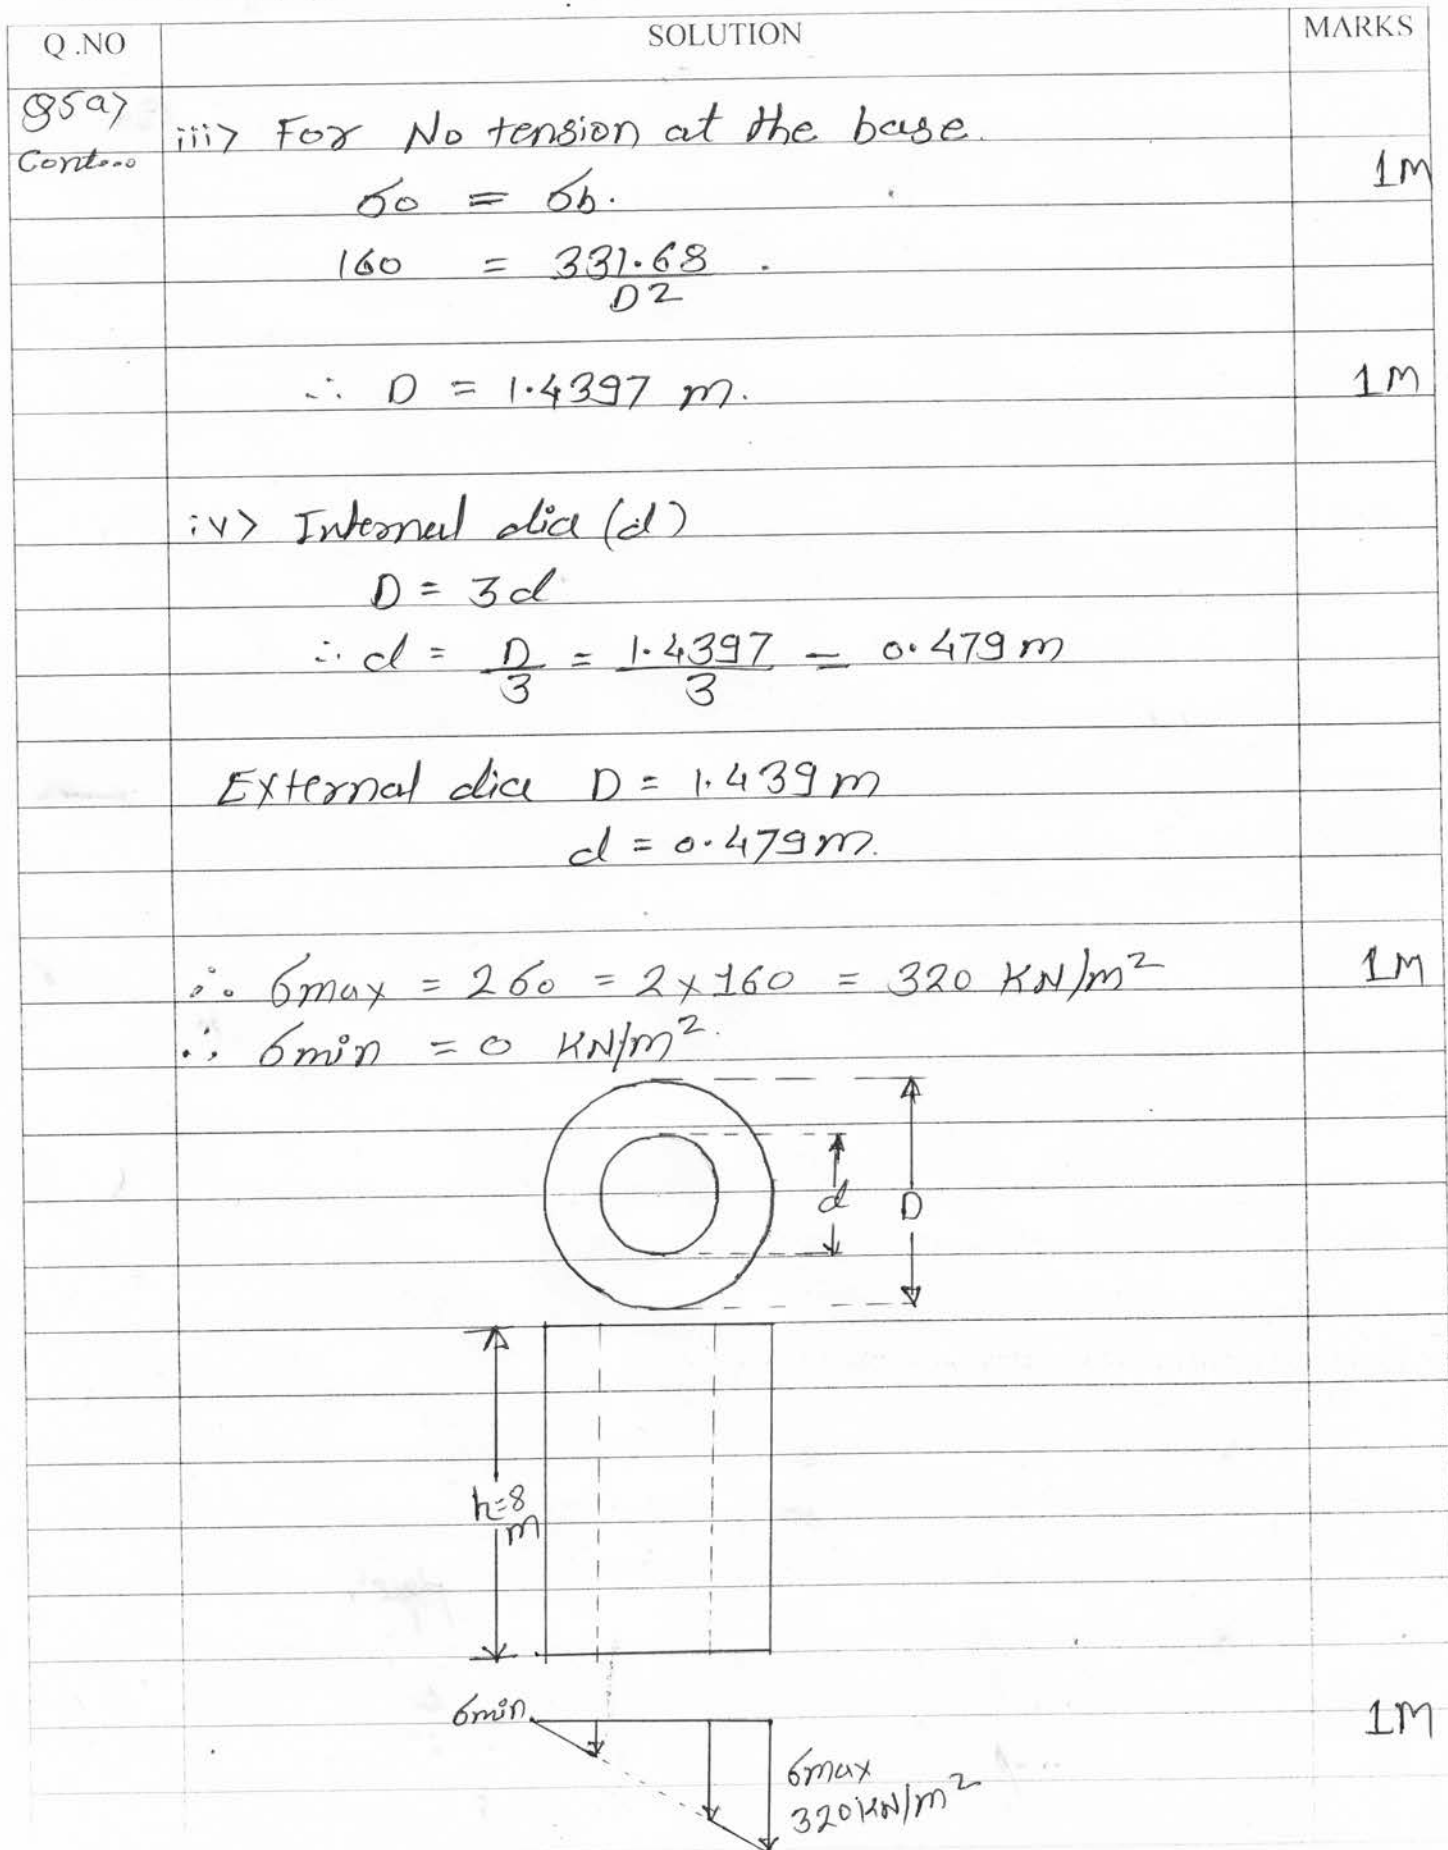 Q.NO SOLUTION MARKS
Q5a)
Cont...
iii> For No tension at the base.
1M
σo = σb.
160 = 331.68 / D2
∴ D = 1.4397 m. 1M
iv> Internal dia (d)
D = 3d
∴ d = D/3 = 1.4397/3 = 0.479 m
External dia D = 1.439 m
d = 0.479 m.
∴ σmax = 2σo = 2 x 160 = 320 KN/m² 1M
∴ σmin = 0 KN/m².
d D
h=8
m
σmin. 1M
σmax
320 KN/m²